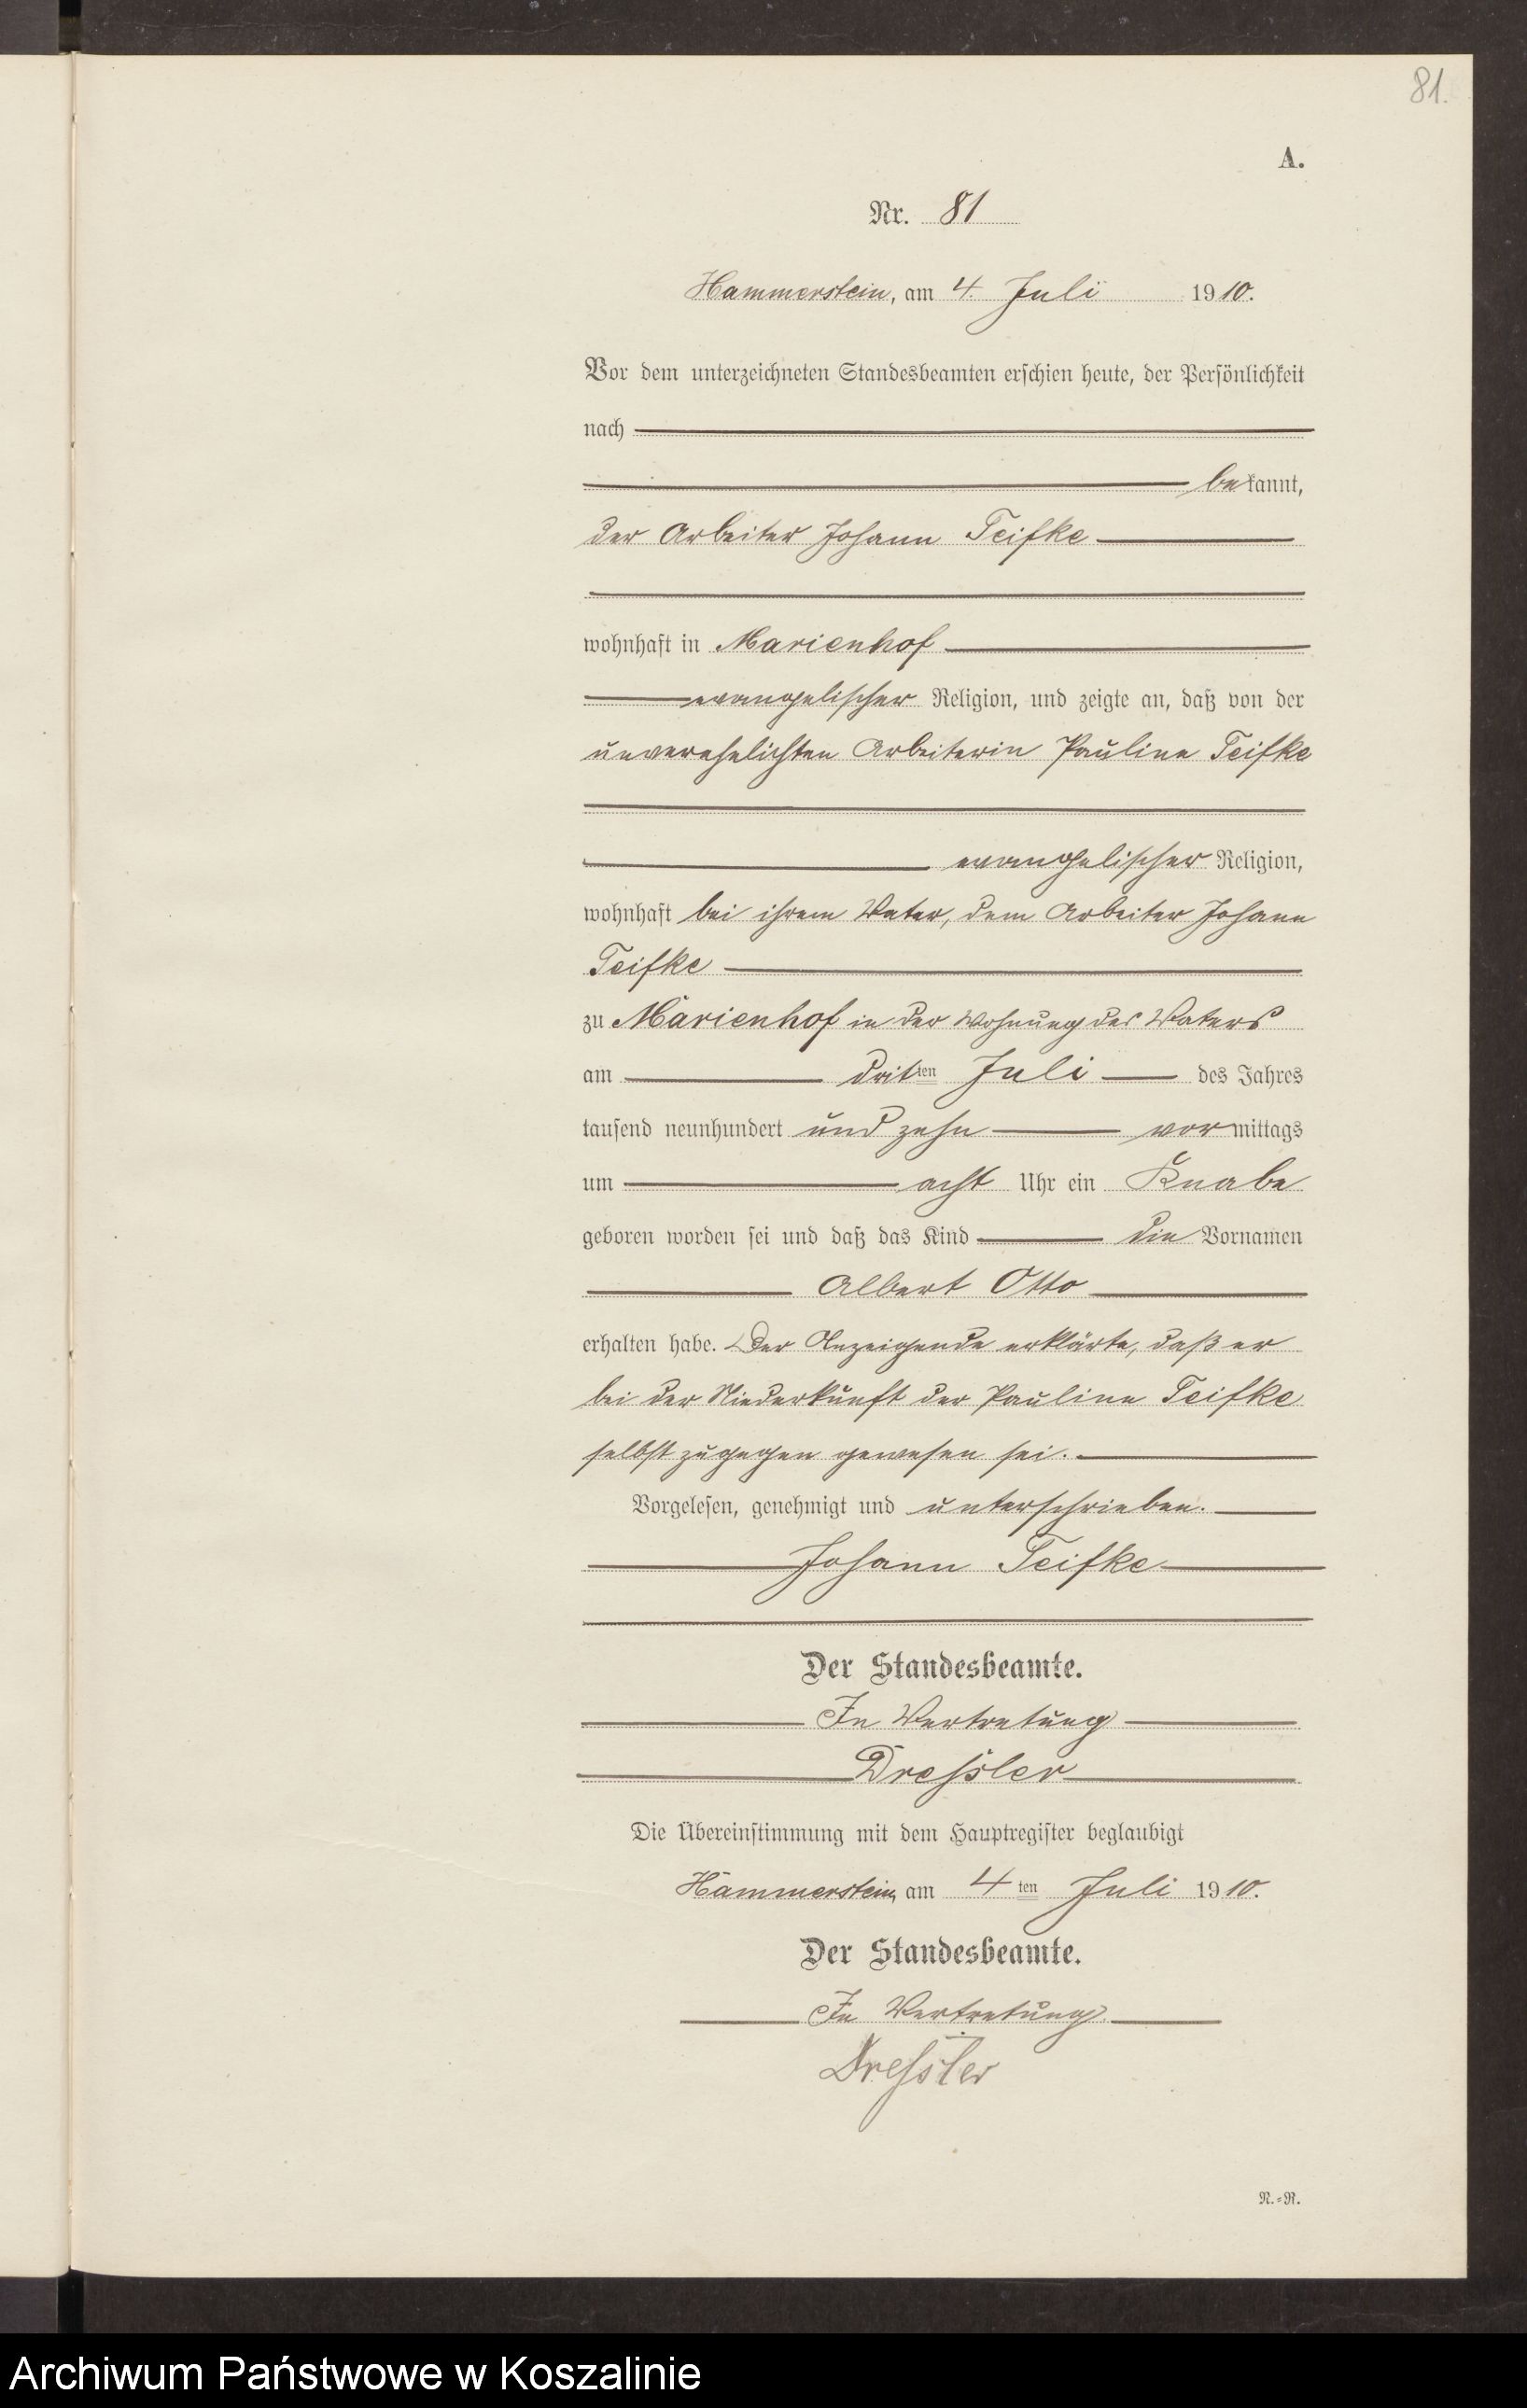 81.
A.
Nr. 81
Hammerstein, am 4. Juli 1910.
Vor dem unterzeichneten Standesbeamten erschien heute, der Persönlichkeit
nach
bekannt,
der Arbeiter Johann Teifke
wohnhaft in Marienhof
evangelischer Religion, und zeigte an, daß von der
unverehelichten Arbeiterin Pauline Teifke
evangelischer Religion,
wohnhaft bei ihrem Vater, dem Arbeiter Johann
Teifke
zu Marienhof in der Wohnung des Vaters
am dritten Juli des Jahres
tausend neunhundert und zehn vormittags
um acht Uhr ein Knabe
geboren worden sei und daß das Kind die Vornamen
Albert Otto
erhalten habe. Der Anzeigende erklärte, daß er
bei der Niederkunft der Pauline Teifke
selbst zugegen gewesen sei.
Vorgelesen, genehmigt und unterschrieben.
Johann Teifke
Der Standesbeamte.
In Vertretung
Dressler
Die Übereinstimmung mit dem Hauptregister beglaubigt
Hammerstein, am 4ten Juli 1910.
Der Standesbeamte.
In Vertretung.
Dressler
N.=R.
Archiwum Państwowe w Koszalinie